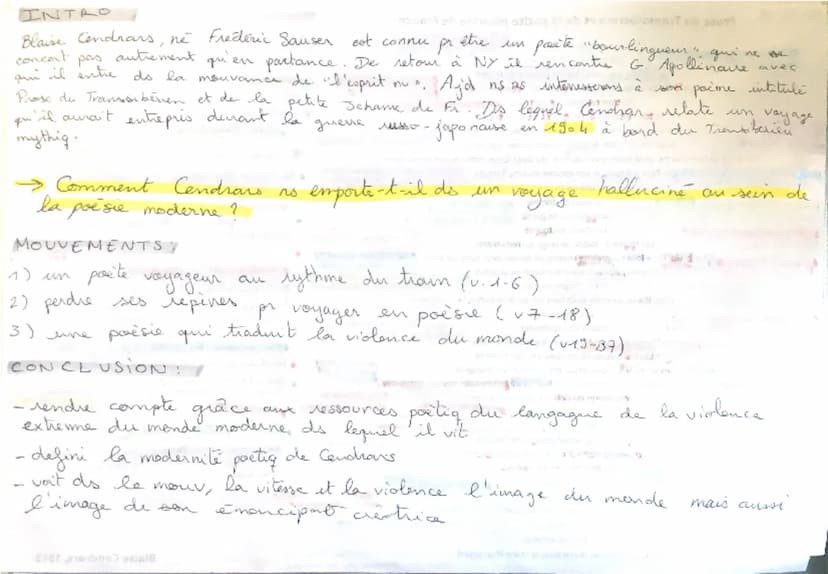 INTRO
Blaise Cendrars, né Frédéric Sauser est connu pr être un poète "bourlingueur" qui ne se
conçoit pas autrement qu'en partance. De retour à NY il rencontre G. Apollinaire avec
qui il entre ds la mouvance de "l'esprit nv". Ajd ns ns interesserons à son poème intitulé
Prose du Transsibérien et de la petite Jehanne de Fr. Ds lequel Cendrars relate un voyage
qu'il aurait entrepris durant la guerre russo-japonaise en 1904 à bord du Transibérien
mythiq.
→ Comment Cendrars ns emporte-t-il ds un voyage halluciné au sein de
la poésie moderne ?
MOUVEMENTS
1) un poète voyageur au rythme du train (v.1-6)
2) perdre ses repères pr voyager en poésie (v7-18)
3) une poésie qui traduit la violence du monde (v19-37)
CONCLUSION :
- rendre compte grâce aux ressources poétiq du langague de la violence
extreme du monde moderne ds lequel il vit
- defini la modernité poétiq de Cendrars
- voit ds le mouv, la vitesse et la violence l'image du monde mais aussi
l'image de son émancipat° créatrice
Blaise Cendrars, 1913